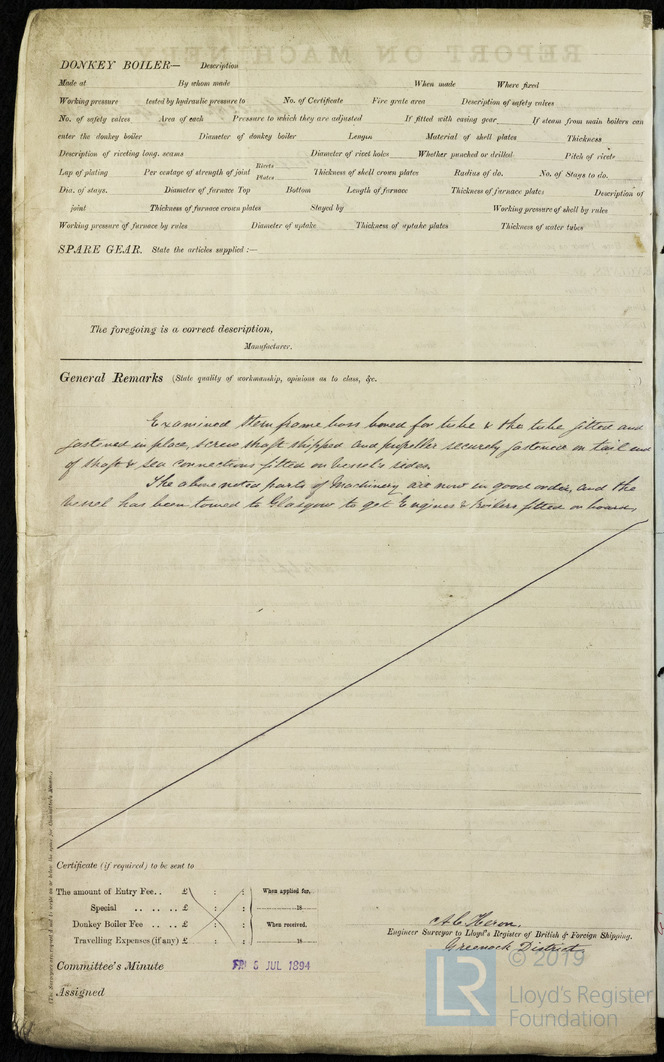 DONKEY BOILER— Description
Made at By whom made When made Where fixed
Working pressure tested by hydraulic pressure to No. of Certificate Fire grate area Description of safety valves
No. of safety valves Area of each Pressure to which they are adjusted If fitted with easing gear If steam from main boilers can
enter the donkey boiler Diameter of donkey boiler Length Material of shell plates Thickness
Description of riveting long. seams Diameter of rivet holes Whether punched or drilled Pitch of rivets
Lap of plating Per centage of strength of joint Rivets Plates Thickness of shell crown plates Radius of do. No. of Stays to do.
Dia. of stays. Diameter of furnace Top Bottom Length of furnace Thickness of furnace plates Description of
joint Thickness of furnace crown plates Stayed by Working pressure of shell by rules
Working pressure of furnace by rules Diameter of uptake Thickness of uptake plates Thickness of water tubes
SPARE GEAR. State the articles supplied :—
The foregoing is a correct description,
Manufacturer.
General Remarks (State quality of workmanship, opinions as to class, &c.
Examined stern frame boss bored for tube & the tube fitted and
fastened in place, screw shaft shipped and propeller securely fastened on tail end
of shaft & sea connections fitted on vessel's sides.
The above noted parts of Machinery are now in good order, and the
vessel has been towed to Glasgow to get Engines & Boilers fitted on board.
Certificate (if required) to be sent to
The amount of Entry Fee . . £ : : When applied for,
Special . . . . . . £ : : 18
Donkey Boiler Fee . . . £ : : When received,
Travelling Expenses (if any) £ : : 18
A. C. Heron.
Engineer Surveyor to Lloyd's Register of British & Foreign Shipping.
Greenock District
Committee's Minute FRI 6 JUL 1894
Assigned
© 2019
LR
Lloyd's Register
Foundation